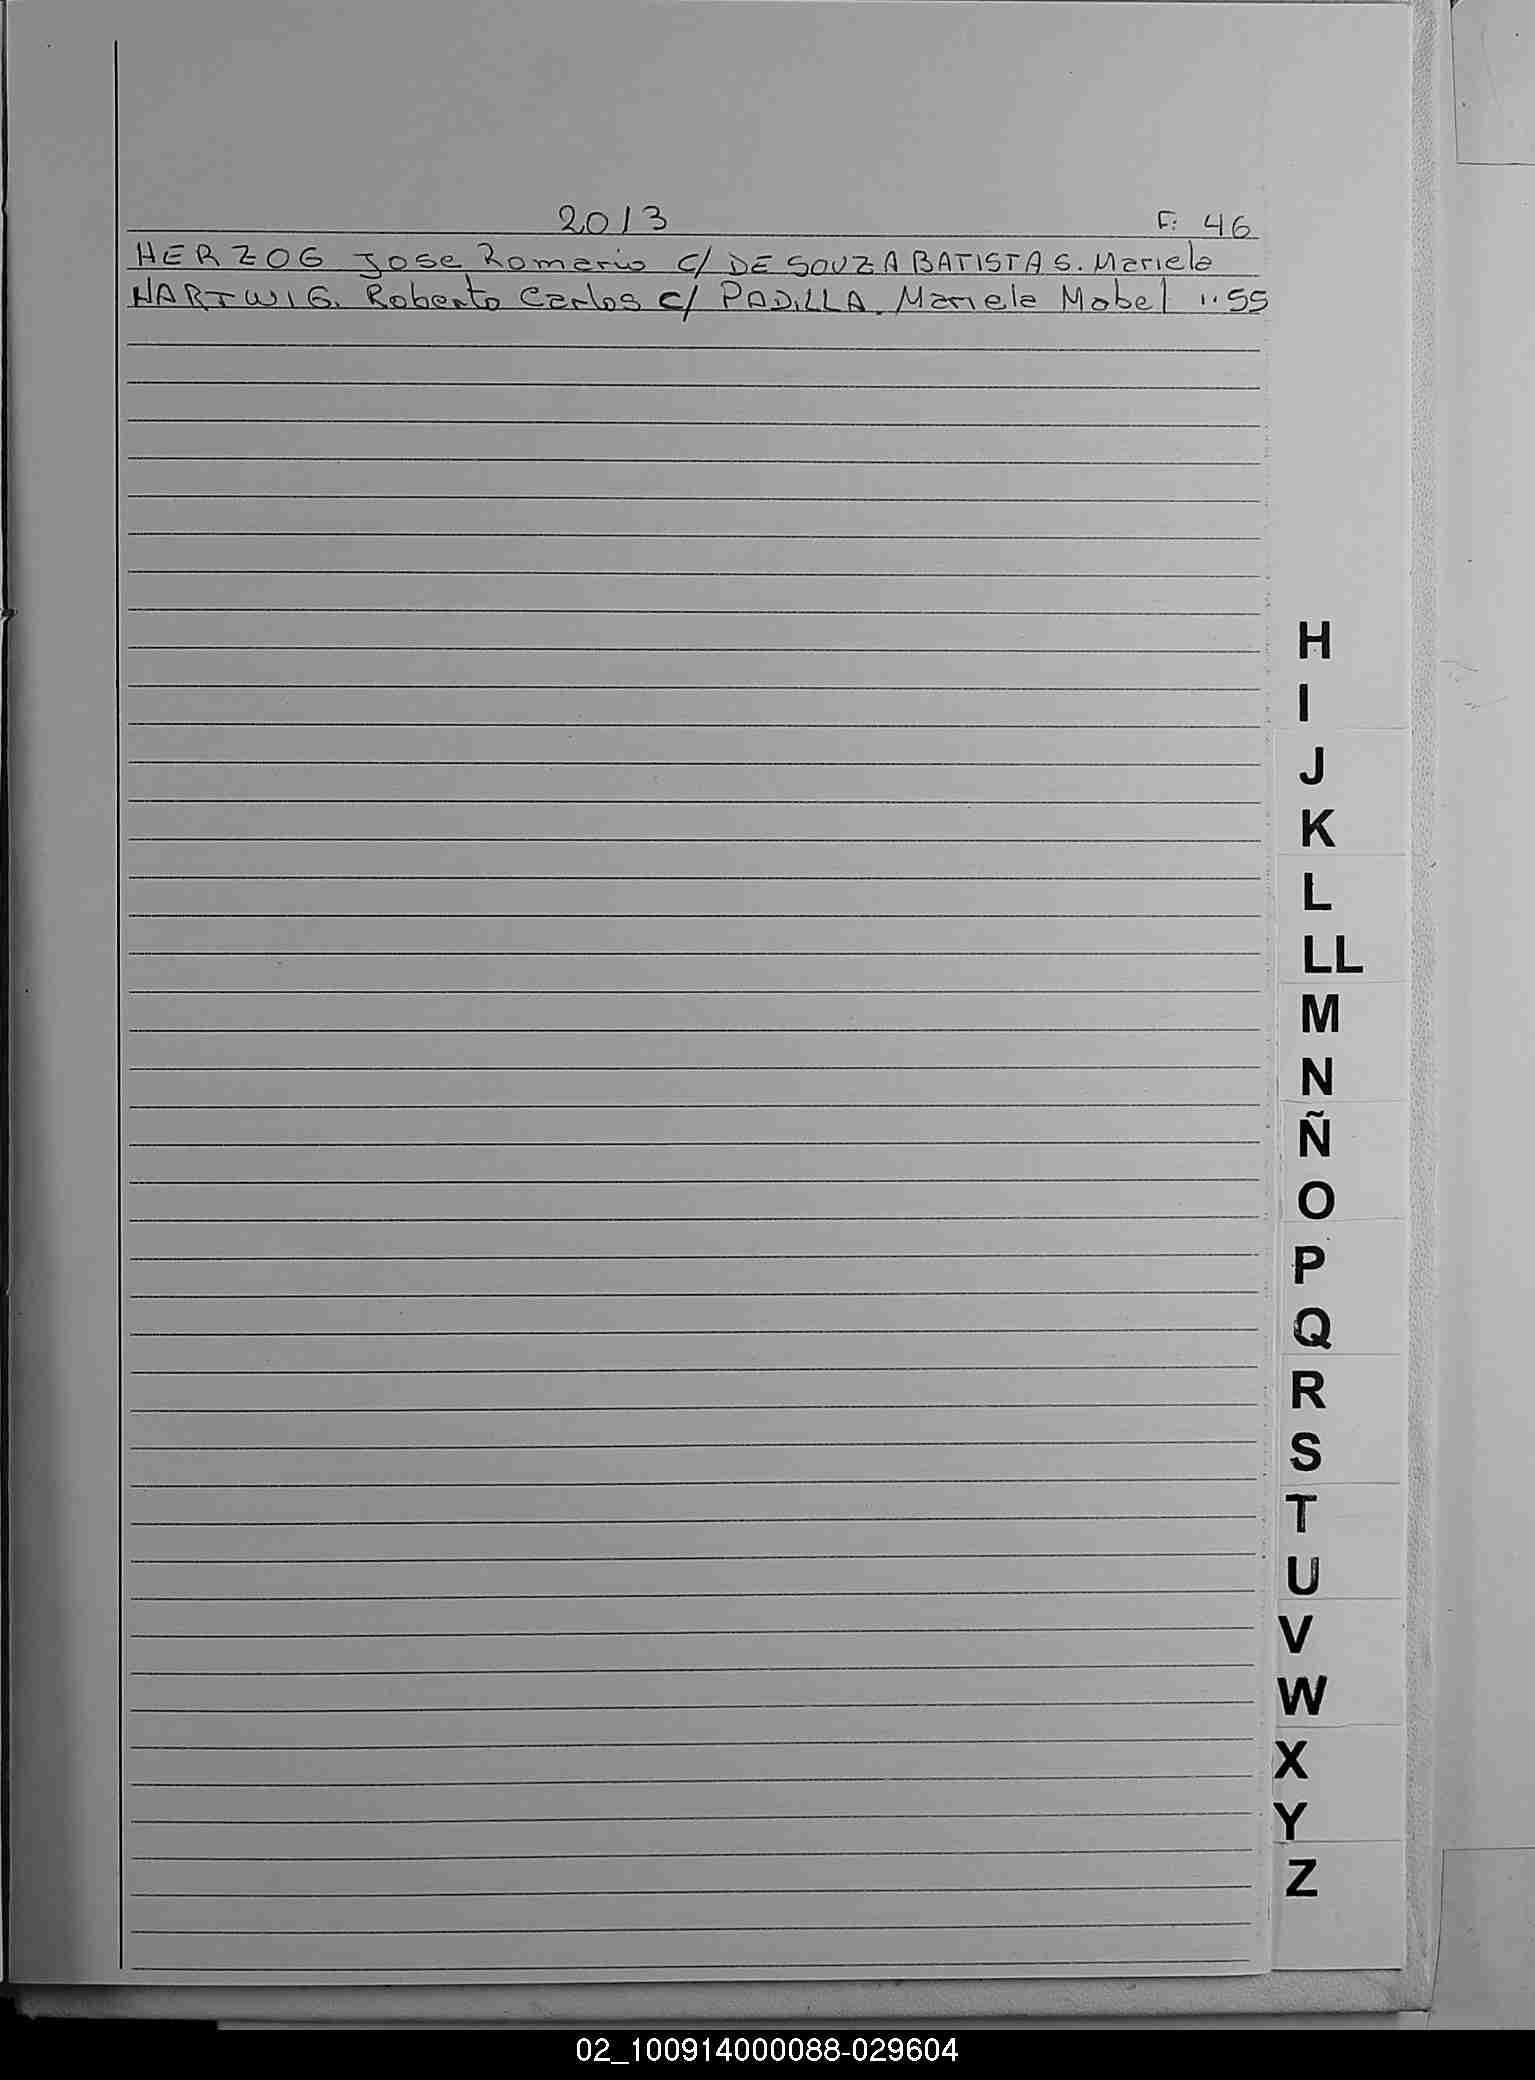 2013 F: 46
HERZOG Jose Romario c/ DE SOUZA BATISTA S. Mariela
HARTWIG. Roberto Carlos c/ PADILLA. Mariela Mabel 1:55
H
I
J
K
L
LL
M
N
Ñ
O
P
Q
R
S
T
U
V
W
X
Y
Z
02_100914000088-029604